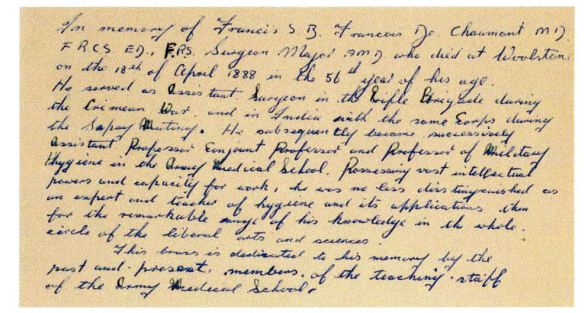 In memory of Francis S. B. Francois De Chaumont M.D.
F.R.C.S. ED., F.R.S. Surgeon Major AMD who died at Woolston
on the 18th of April 1888 in the 56th year of his age.
He served as Assistant Surgeon in the Rifle Brigade during
the Crimean War, and in India with the same Corps during
the Sapoy Mutiny. He subsequently became successively
Assistant Professor Conjoint Professor and Professor of Military
Hygiene in the Army Medical School. Possessing vast intellectual
powers and capacity for work, he was no less distinguished as
an expert and teacher of hygiene and its applications, then
for the remarkable range of his knowledge in the whole.
circle of the liberal arts and sciences.
This brass is dedicated to his memory by the
past and present. members. of the teaching. staff
of the Army Medical School.